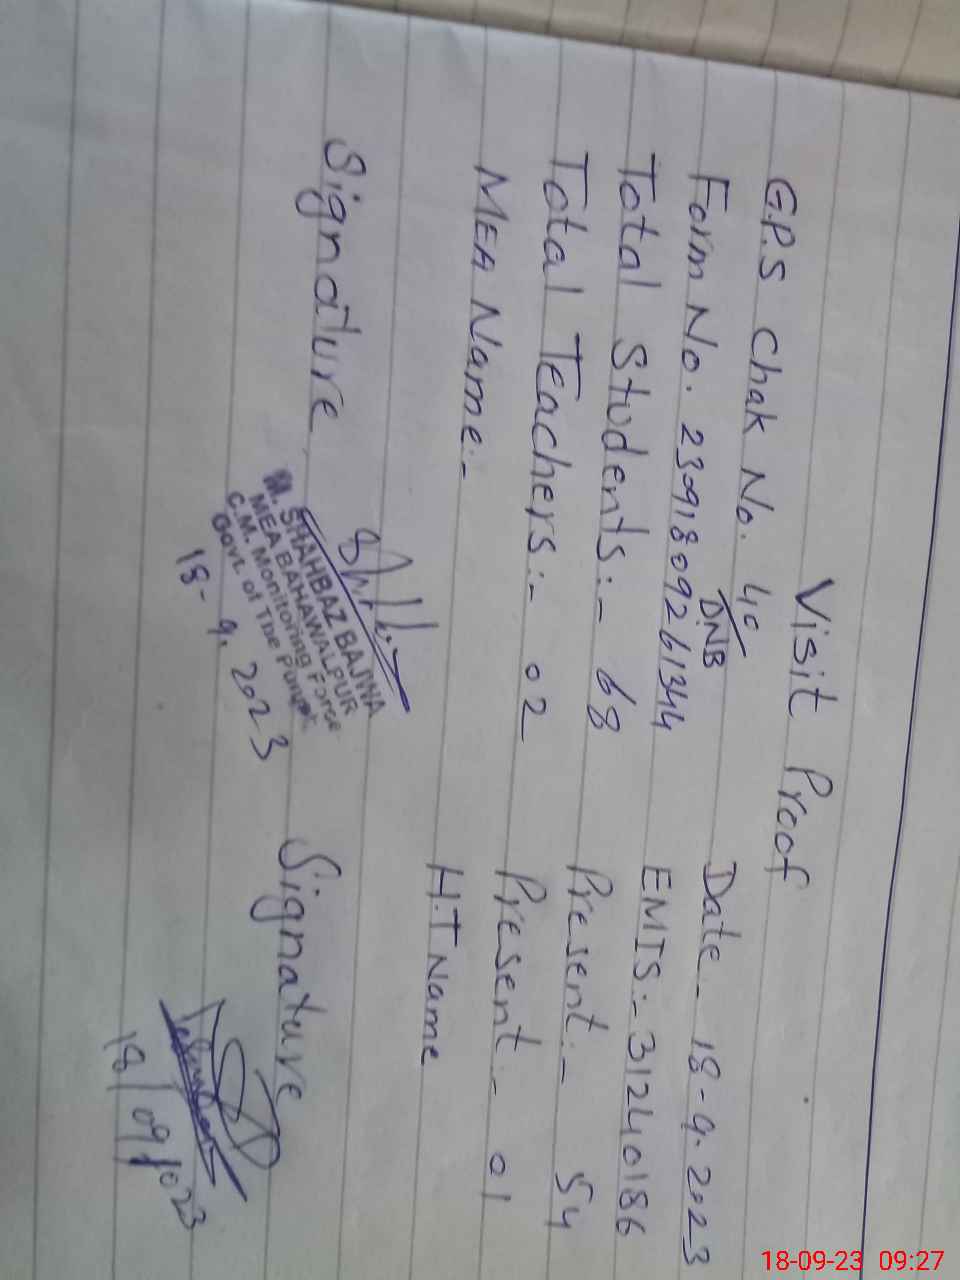 Visit Proof
G.P.S Chak No. 40/DNB Date - 18-9-2023
Form No. 23091809261344 EMIS:- 31240186
Total Students:- 68 Present:- 54
Total Teachers:- 02 Present:- 01
MEA Name:- H.T Name
Signature Signature
M. SHAHBAZ BAJWA
MEA BAHAWALPUR
C.M. Monitoring Force
Govt. of The Punjab
18-9.2023
18/09/2023
18-09-23 09:27